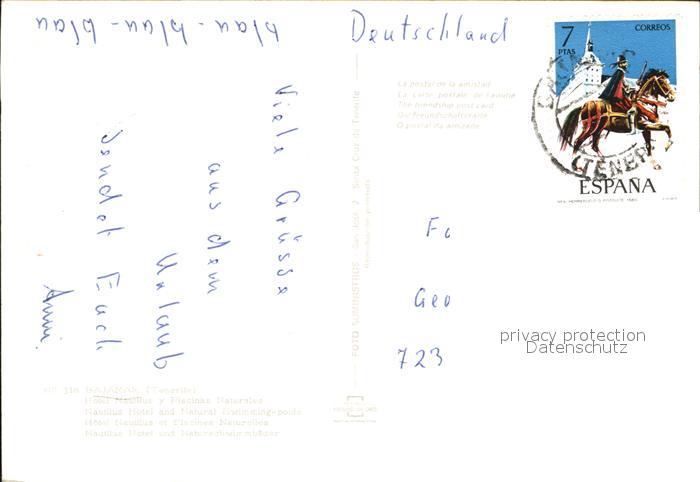 blau - blau - blau
Deutschland
7
PTAS
CORREOS
TENER
ESPAÑA
La postal de la amistad
La carte postale de l'amitié
The friendship post card
Die Freundschaftskarte
O postal da amizade
Viele Grüsse
aus dem
Urlaub
sendet Euch
Anni.
FOTO SUMINISTROS San José, 2 Santa Cruz de Tenerife
Fc
Geo
723
privacy protection
Datenschutz
310 BAJAMAR (Tenerife)
Hotel Nautilus y Piscinas Naturales
Nautilus Hotel and Natural Swimming-pools
Hôtel Nautilus et Piscines Naturelles
Nautilus Hotel und Naturschwimmbäder